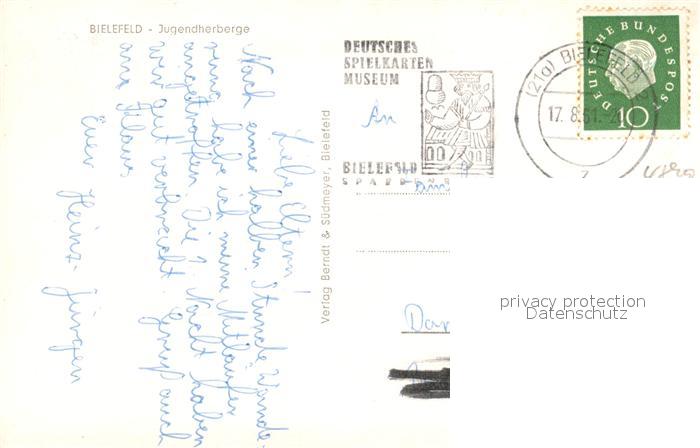 BIELEFELD - Jugendherberge
Liebe Eltern!
Nach einer halben Stunde Wande-
rung habe ich meine Mitläufer
angetroffen. Die 1. Nacht haben
wir gut verbracht. Gruß auch
ans Klaus
Euer Heinz-Jürgen
Verlag Berndt & Südmeyer, Bielefeld
DEUTSCHES
SPIELKARTEN
MUSEUM
BIELEFELD
An
(21a) BIELEFELD
17. 8. 61.
DEUTSCHE BUNDESPOST
10
privacy protection
Datenschutz